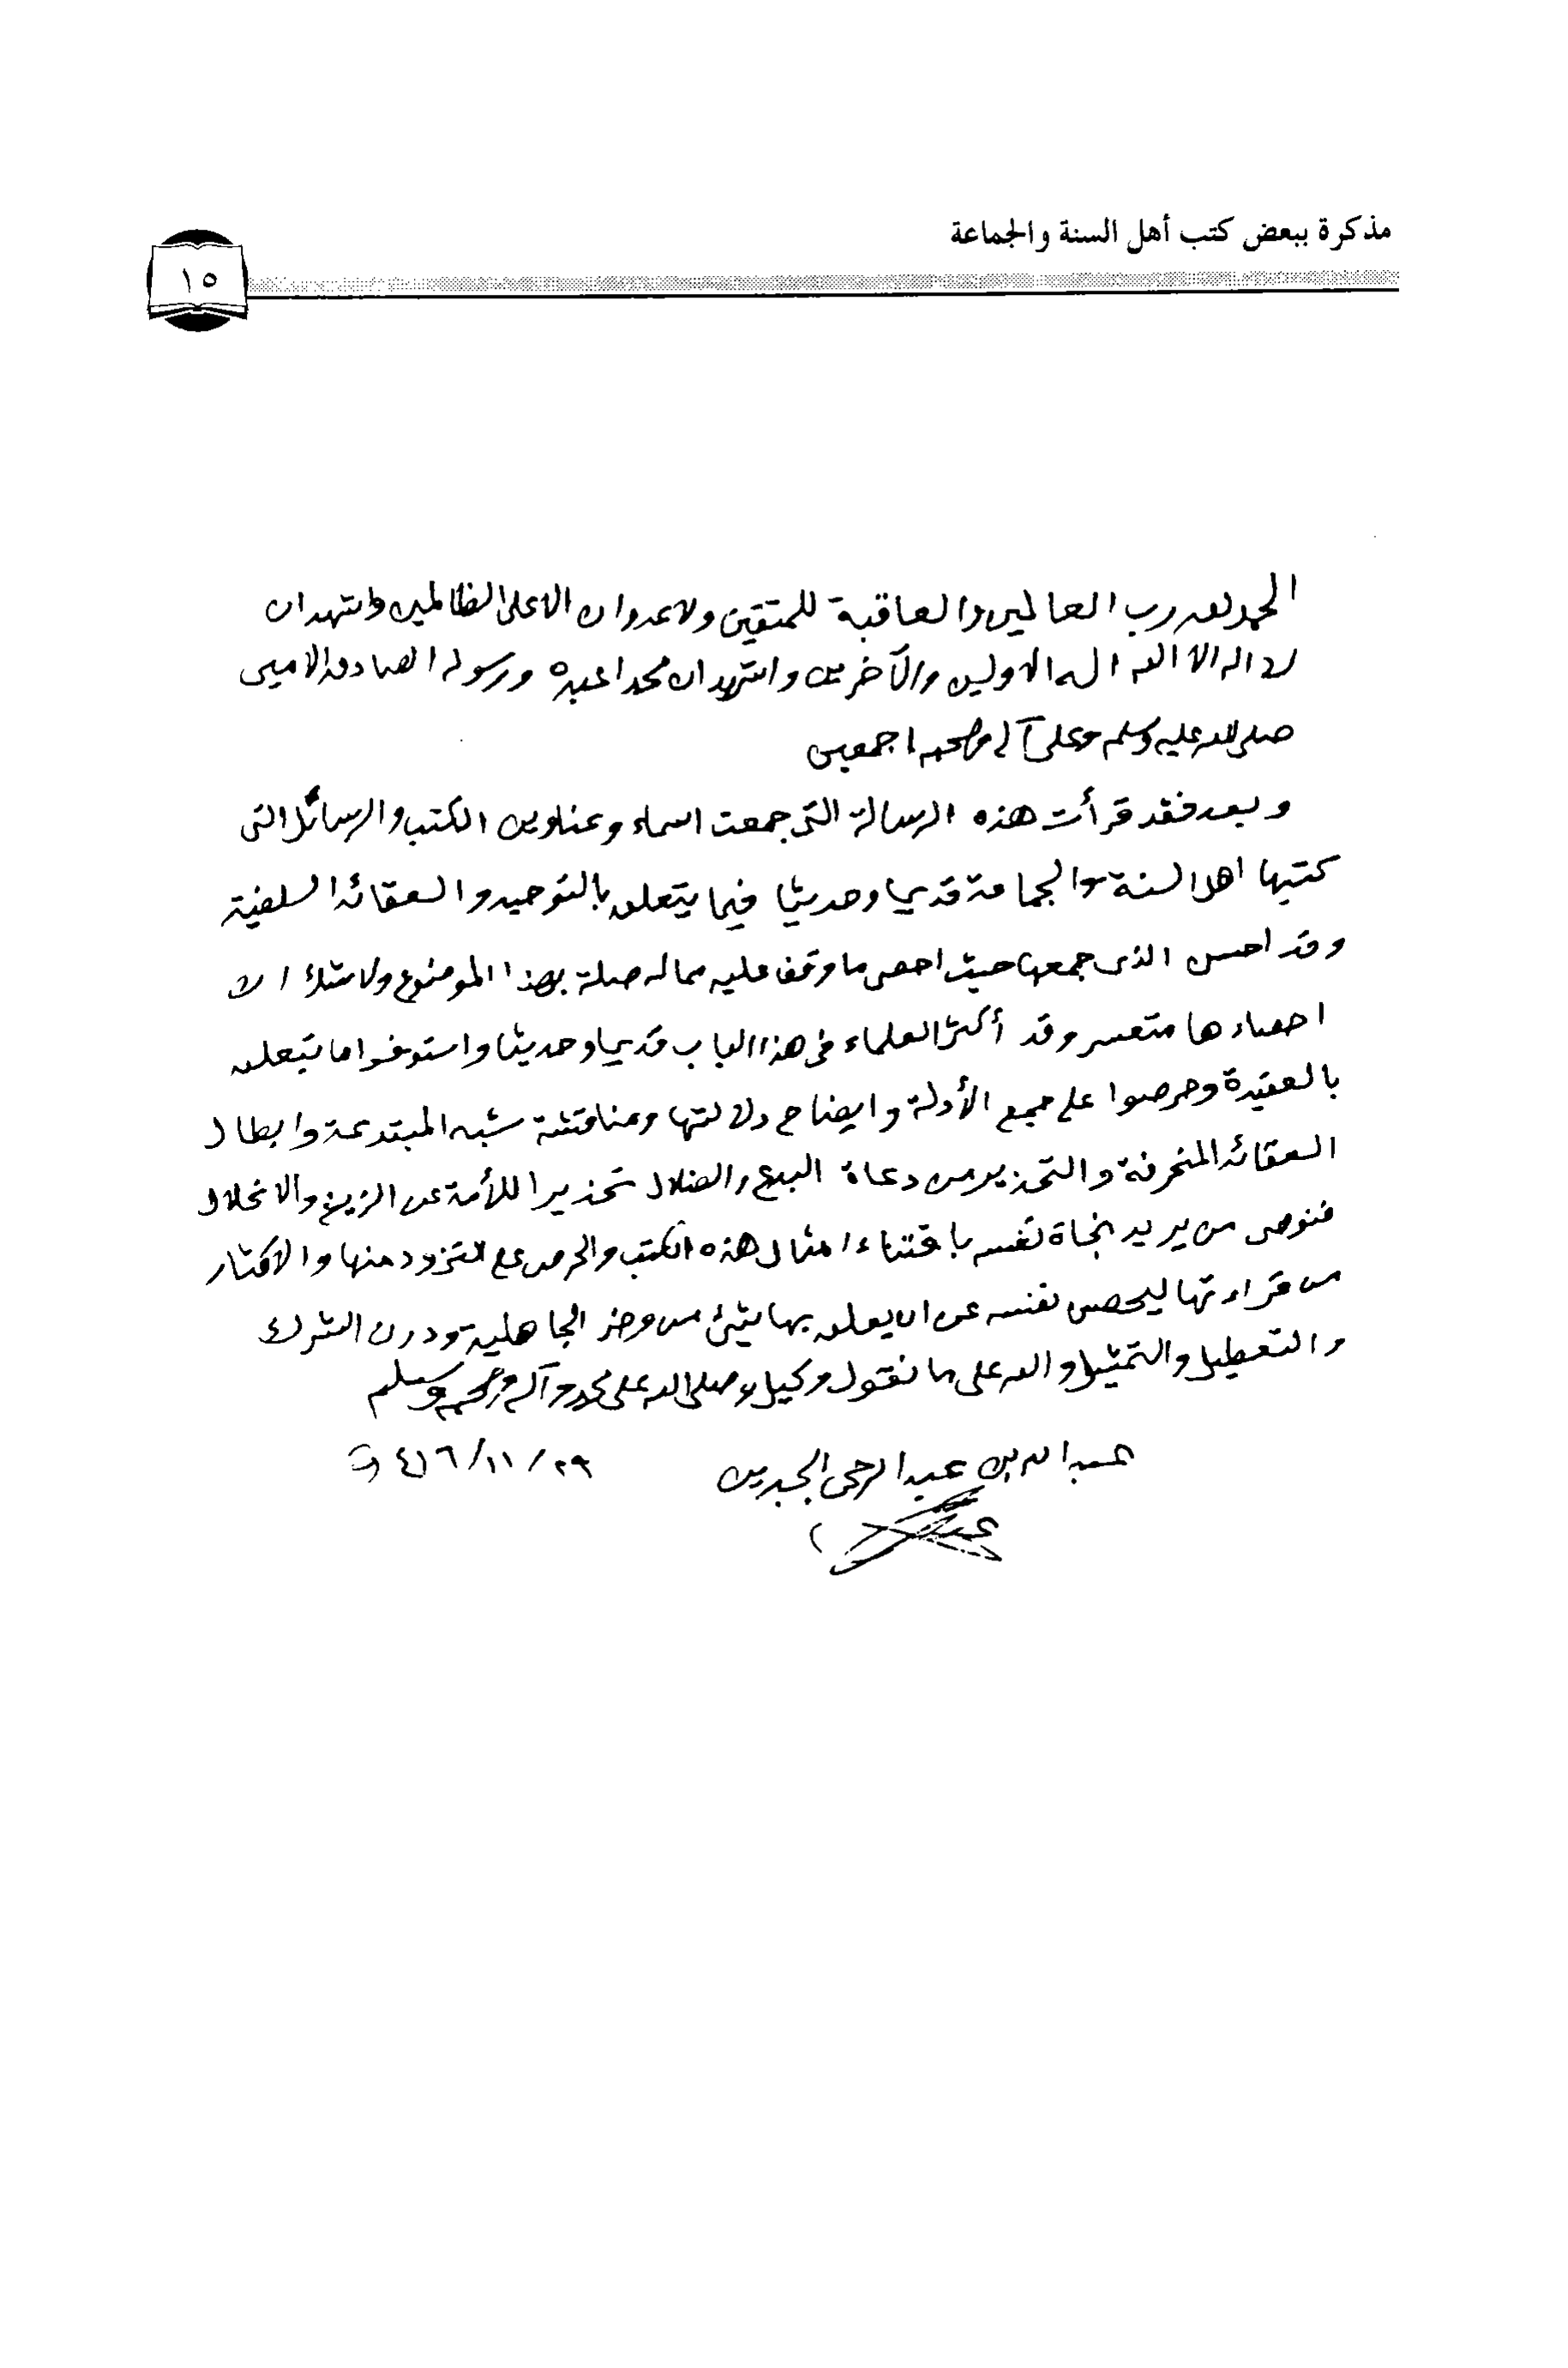 مذكرة ببعض كتب أهل السنة والجماعة
١٥
الحمد لله رب العالمين والعاقبة للمتقين ولا عدوان الا على الظالمين واشهد ان
لا اله الا الله اله الاولين والآخرين واشهد ان محمدا عبده ورسوله الصادق الامين
صلى الله عليه وسلم وعلى آله وصحبه اجمعين
وبعد فقد قرأت هذه الرسالة التي جمعت اسماء وعناوين الكتب والرسائل التى
كتبها اهل السنة والجماعة قديما وحديثا فيما يتعلق بالتوحيد والعقائد السلفية
وقد احسن الذى جمعها حيث احصى ما وقف عليه مما له صلة بهذا الموضوع ولا شك ان
احصاءها متعسر وقد أكثر العلماء فى هذا الباب قديما وحديثا واستوفوا ما يتعلق
بالعقيدة وحرصوا على جمع الأدلة وايضاح دلالتها ومناقشة شبه المبتدعة وابطال
العقائد المنحرفة والتحذير من دعاة البدع والضلال تحذيرا للأمة عن الزيغ والانحلال
فنوصى من يريد نجاة نفسه باقتناء امثال هذه الكتب والحرص على التزود منها والاكثار
من قراءتها ليحصن نفسه عن ان يعلق بها شئ من وضر الجاهلية ودرن الشرك
والتعطيل والتمثيل والله على ما نقول وكيل وصلى الله على محمد وآله وصحبه وسلم
عبد الله بن عبد الرحمن الجبرين ٢٩/١١/١٤١٦ هـ